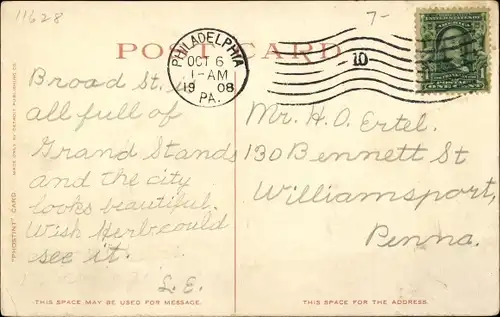 11628
7-
POST CARD
PHILADELPHIA
OCT 6
1-AM
1908
PA.
10
UNITED STATES OF AMERICA
1 ONE CENT 1
Broad St. is
all full of
Grand Stands
and the city
looks beautiful.
Wish Herb could
see it.
L.E.
Mr. H.O. Ertel.
130 Bennett St
Williamsport,
Penna.
"PHOSTINT" CARD MADE ONLY BY DETROIT PUBLISHING CO.
THIS SPACE MAY BE USED FOR MESSAGE.
THIS SPACE IS FOR THE ADDRESS.